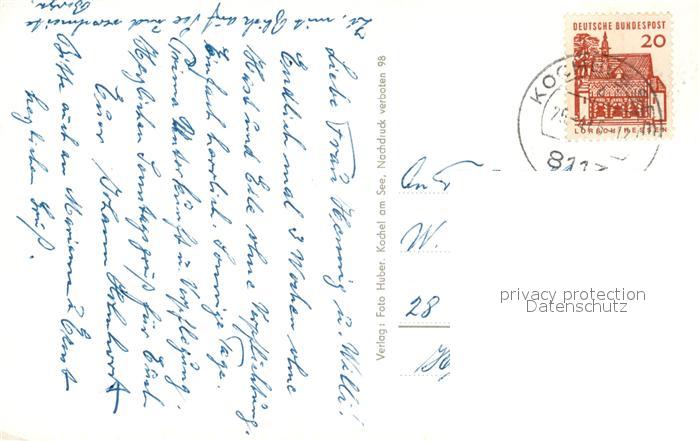 Liebe Frau Hennig u. Willi!
Endlich mal 3 Wochen ohne
Hast und Eile ohne Verpflichtung.
Einfach herrlich. Sonnige Tage.
Prima Unterkunft u. Verpflegung.
Herzlichen Sonntagsgruß für Euch
Euer Johann
Bitte auch an Mariann u. Ernst
herzlichen Gruß.
Zi. mit Blick auf See und
Berge.
Verlag: Foto Huber, Kochel am See, Nachdruck verboten 98
DEUTSCHE BUNDESPOST
20
LORSCH/HESSEN
KOCHEL
811
W.
28
privacy protection
Datenschutz